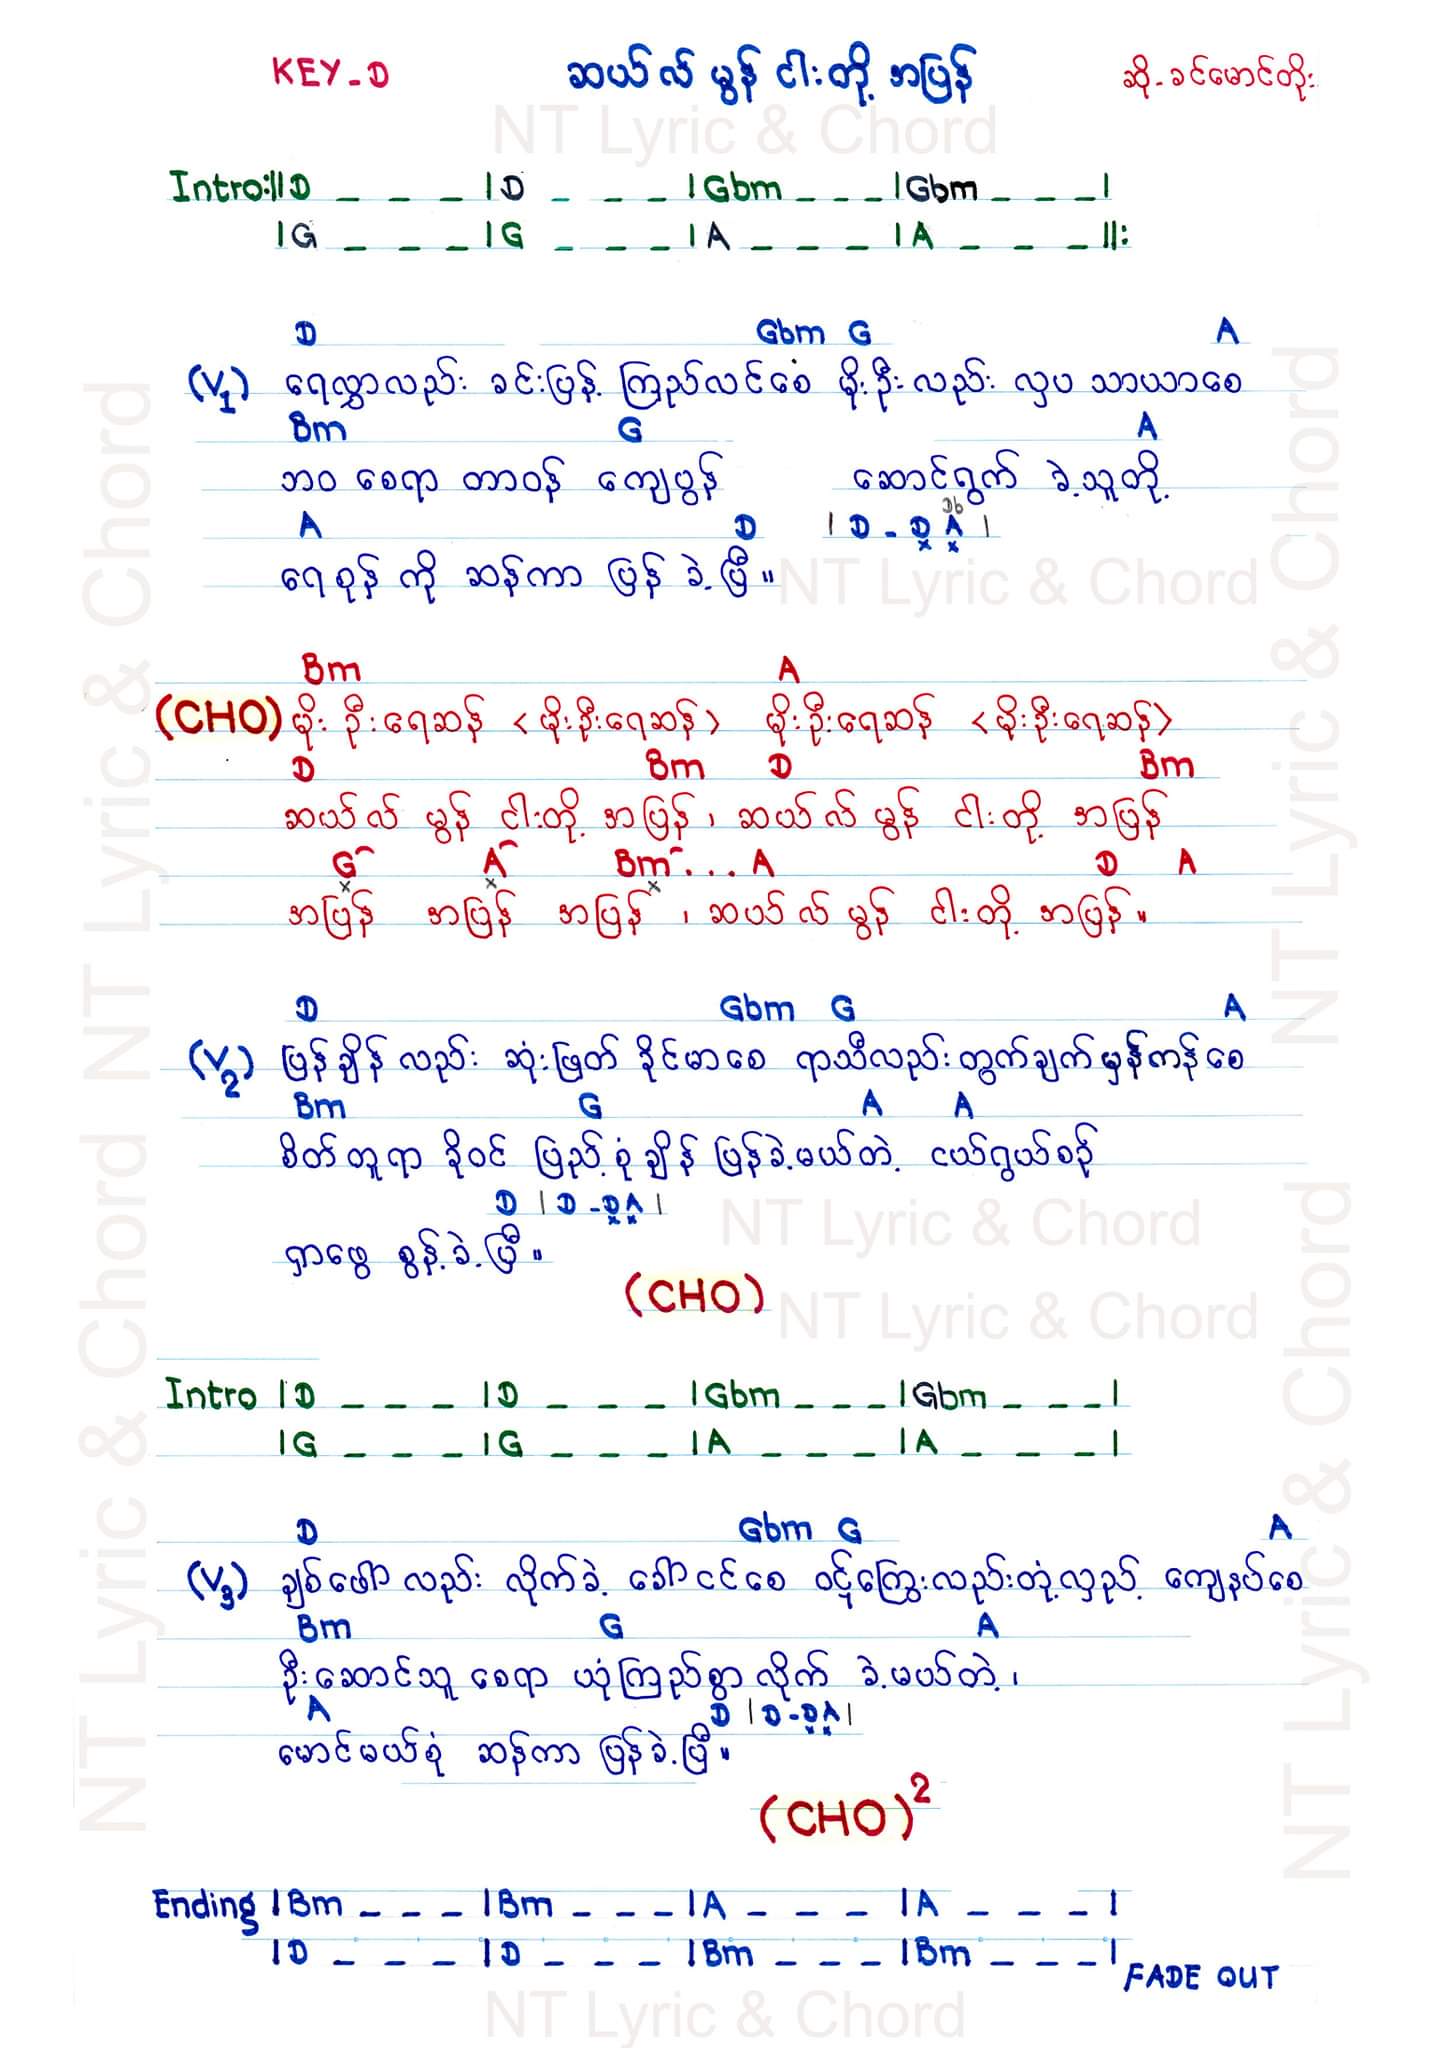 KEY-D ဆယ်လ်မွန် ငါးတို့ အပြန် ဆို-ခင်မောင်တိုး
NT Lyric & Chord
Intro:||D _ _ _ |D _ _ _ |Gbm _ _ _ |Gbm _ _ _|
|G _ _ _ |G _ _ _ |A _ _ _ |A _ _ _||:
D Gbm G A
(V1) ရေလွှာလည်း ခင်းပြန့် ကြည်လင်စေ မိုးဦးလည်း လှပ သာယာစေ
Bm G A
ဘဝ စေရာ တာဝန် ကျေပွန် ဆောင်ရွက် ခဲ့သူတို့
Db
A D | D - D A |
ရေစုန် ကို ဆန်ကာ ပြန် ခဲ့ပြီ။
NT Lyric & Chord
Bm A
(CHO) မိုးဦးရေဆန် <မိုးဦးရေဆန်> မိုးဦးရေဆန် <မိုးဦးရေဆန်>
D Bm D Bm
ဆယ်လ်မွန် ငါးတို့ အပြန်၊ ဆယ်လ်မွန် ငါးတို့ အပြန်
G A Bm . . . A D A
အပြန် အပြန် အပြန်၊ ဆယ်လ်မွန် ငါးတို့ အပြန်။
D Gbm G A
(V2) ပြန်ချိန်လည်း ဆုံးဖြတ် ခိုင်မာစေ ရာသီလည်းတွက်ချက်မှန်ကန်စေ
Bm G A A
စိတ်တူရာ ခိုဝင် ပြည့်စုံချိန် ပြန်ခဲ့မယ်တဲ့ ငယ်ရွယ်စဉ်
D | D - D A |
ရှာဖွေ စွန့်ခဲ့ပြီ။
NT Lyric & Chord
(CHO)
NT Lyric & Chord
Intro |D _ _ _ |D _ _ _ |Gbm _ _ _ |Gbm _ _ _|
|G _ _ _ |G _ _ _ |A _ _ _ |A _ _ _ |
D Gbm G A
(V3) ချစ်ဖော်လည်း လိုက်ခဲ့ ခေါ်ငင်စေ ဝဋ်ကြွေးလည်းတုံ့လှည့် ကျေနပ်စေ
Bm G A
ဦးဆောင်သူ စေရာ ယုံကြည်စွာ လိုက် ခဲ့မယ်တဲ့၊
A D | D - D A |
မောင်မယ်စုံ ဆန်ကာ ပြန်ခဲ့ပြီ။
(CHO)2
Ending |Bm _ _ _ |Bm _ _ _ |A _ _ _ |A _ _ _ |
|D _ _ _ |D _ _ _ |Bm _ _ _ |Bm _ _ _ |
FADE OUT
NT Lyric & Chord
NT Lyric & Chord NT Lyric & Chord
NT Lyric & Chord NT Lyric & Chord